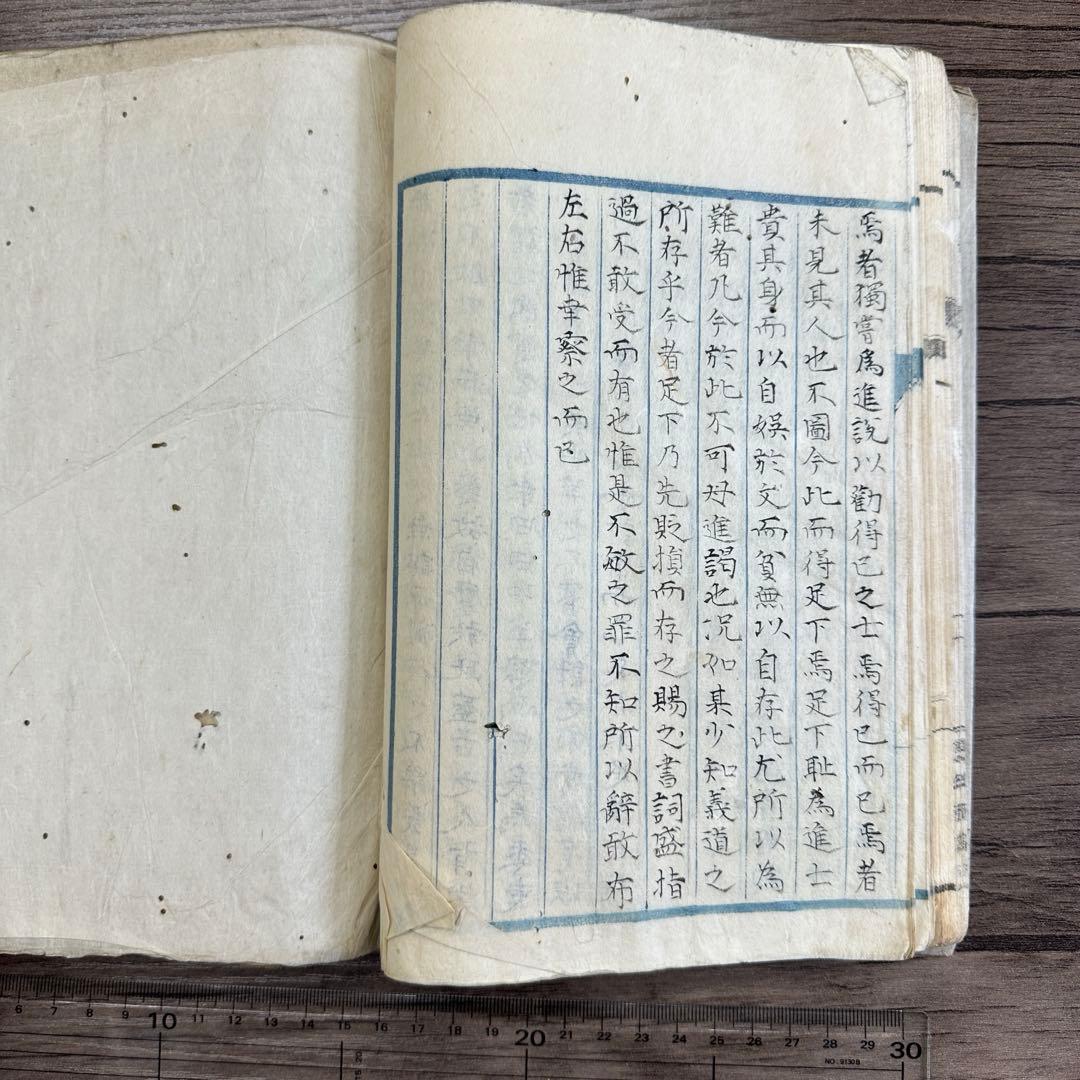 焉者獨嘗為進說以勸得已之士焉得已而已焉者
未見其人也不圖今此而得足下焉足下恥為進士
貴其身而以自娛於文而貧無以自存此尤所以為
難者凡今於此不可毋進謁也况如某少知義道之
所存乎今者足下乃先貶損而存之賜之書詞盛指
過不敢受而有也惟是不敏之罪不知所以辭敢布
左右惟幸察之而已
6 7 8 9 10 11 12 13 14 15 16 17 18 19 20 21 22 23 24 25 26 27 28 29 30
NO.9130B